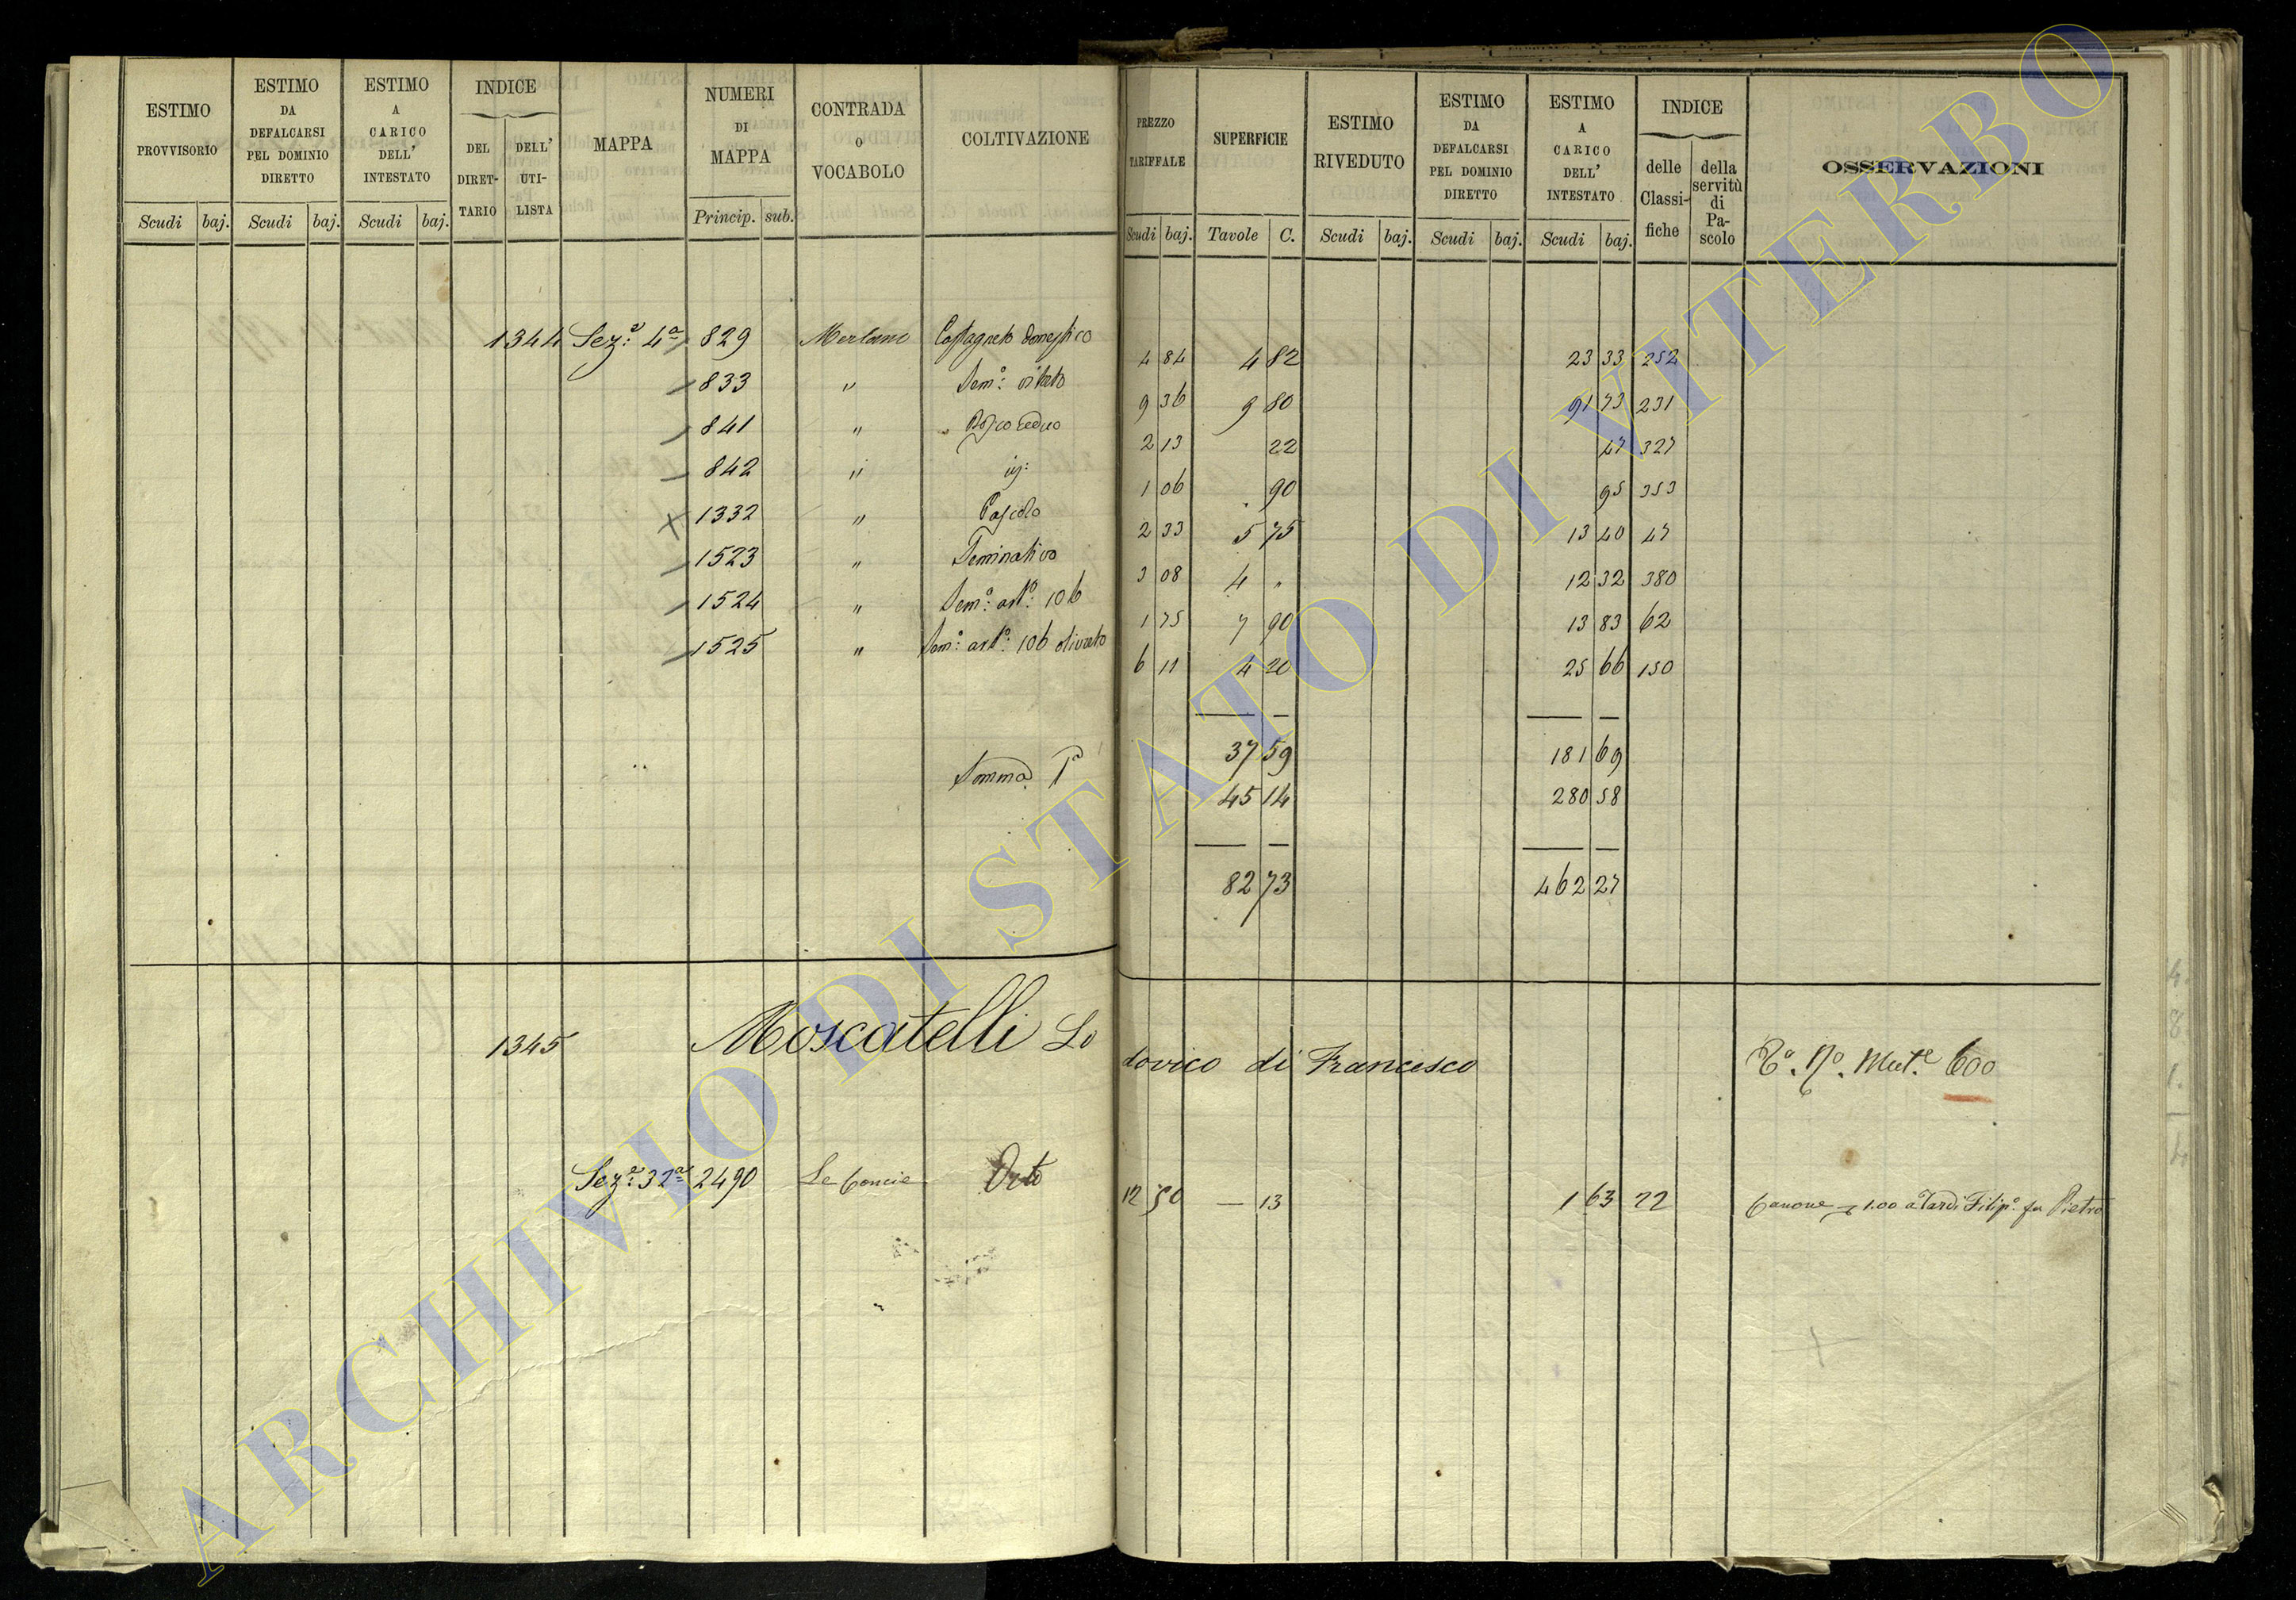 ESTIMO PROVVISORIO
Scudi baj.
ESTIMO DA DEFALCARSI PEL DOMINIO DIRETTO
Scudi baj.
ESTIMO A CARICO DELL' INTESTATO
Scudi baj.
INDICE
DEL DIRET- TARIO
DELL' UTI- LISTA
MAPPA
NUMERI DI MAPPA
Princip. sub.
CONTRADA o VOCABOLO
COLTIVAZIONE
PREZZO TARIFFALE
Scudi baj.
SUPERFICIE
Tavole C.
ESTIMO RIVEDUTO
Scudi baj.
ESTIMO DA DEFALCARSI PEL DOMINIO DIRETTO
Scudi baj.
ESTIMO A CARICO DELL' INTESTATO
Scudi baj.
INDICE
delle Classi- fiche
della servitù di Pa- scolo
OSSERVAZIONI
1344 Sez.e 4a 829 Merlano Castagneto domestico 4 84 4 82 23 33 252
833 " Sem.o vitato 9 36 9 80 91 73 231
841 " Bosco ceduo 2 13 22 47 327
842 " 1 06 90 95 353
1332 " Pascolo 2 33 5 75 13 40 47
1523 " Seminativo 3 08 4 " 12 32 380
1524 " Sem.o art.o 106 1 75 7 90 13 83 62
1525 " Sem.o art.o 106 olivato 6 11 4 20 25 66 150
37 59 181 69
Somma 45 14 280 58
82 73 462 27
1345 Moscatelli Lodovico di Francesco Mut.e 600
Sez.e 32a 2490 Le Concie Orto 12 50 — 13 1 63 22 Canone 1.00 a Tardi Filip.o fu Pietro
ARCHIVIO DI STATO DI VITERBO